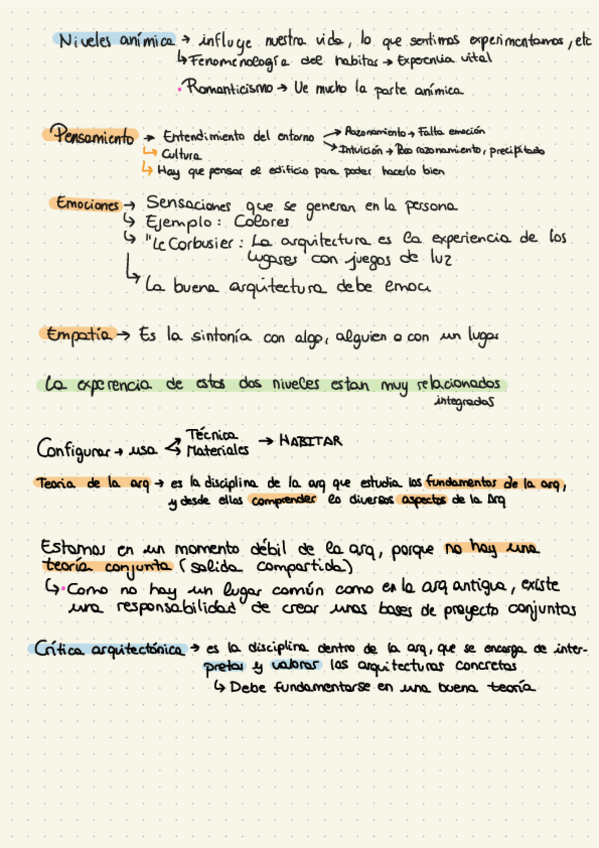 Niveles anímica → influye nuestra vida, lo que sentimos experimentamos, etc
↳ Fenomenología del habitar → Experencia vital
· Romanticismo → Ve mucho la parte anímica
Pensamiento → Entendimiento del entorno → Razonamiento → Falta emoción
↳ Cultura → Intuición → Poco razonamiento, precipitado
↳ Hay que pensar el edificio para poder hacerlo bien
Emociones → Sensaciones que se generan en la persona
↳ Ejemplo: Colores
↳ "Le Corbusier: La arquitectura es la experiencia de los
lugares con juegos de luz
↳ La buena arquitectura debe emoci
Empatía → Es la sintonía con algo, alguien o con un lugar
La experencia de estos dos niveles estan muy relacionados
integrados
Configurar → usa Técnica
Materiales → HABITAR
Teoria de la arq → es la disciplina de la arq que estudia los fundamentos de la arq,
y desde ellos comprender los diversos aspectos de la Arq
Estamos en un momento débil de la arq, porque no hay una
teoría conjunta (salida compartida)
↳ · Como no hay un lugar común como en la arq antigua, existe
una responsabilidad de crear unas bases de proyecto conjuntas
Crítica arquitectónica → es la disciplina dentro de la arq, que se encarga de inter-
pretar y valorar las arquitecturas concretas
↳ Debe fundamentarse en una buena teoría